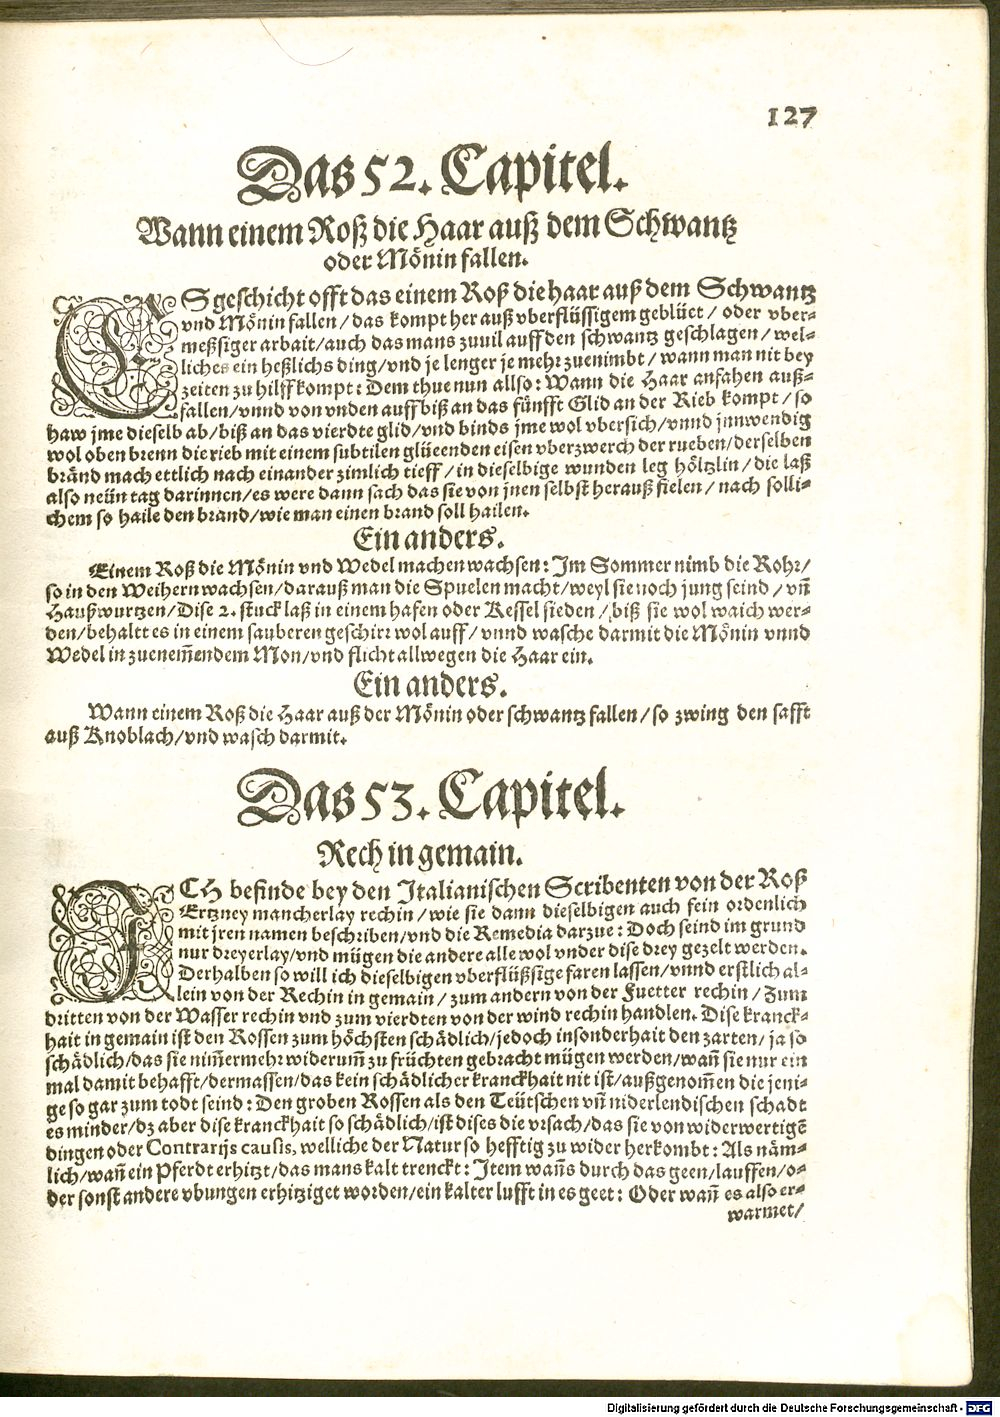 127
Das 52. Capitel.
Wann einem Roß die Haar auß dem Schwantz
oder Mönin fallen.
ES geschicht offt das einem Roß die haar auß dem Schwantz
vnd Mönin fallen / das kompt her auß vberflüssigem geblüet / oder vber-
meßsiger arbait / auch das mans zuuil auff den schwantz geschlagen / wel-
liches ein heßlichs ding / vnd je lenger je mehr zuenimbt / wann man nit bey
zeiten zu hilff kompt : Dem thue nun allso : Wann die Haar anfahen auß-
fallen / vnnd von vnden auff biß an das fünfft Glid an der Rieb kompt / so
haw jme dieselb ab / biß an das vierdte glid / vnd binds jme wol vbersich / vnnd jnnwendig
wol oben brenn die rieb mit einem subtilen glüeenden eisen vberzwerch der rueben / derselben
bränd mach ettlich nach einander zimlich tieff / in dieselbige wunden leg höltzlin / die laß
also neün tag darinnen / es were dann sach das sie von jnen selbst herauß fielen / nach solli-
chem so haile den brand / wie man einen brand soll hailen.
Ein anders.
Einem Roß die Mönin vnd Wedel machen wachsen : Im Sommer nimb die Rohr /
so in den Weihern wachsen / darauß man die Spuelen macht / weyl sie noch jung seind / vñ
Haußwurtzen / Dise 2. stuck laß in einem hafen oder Kessel sieden / biß sie wol waich wer-
den / behaltt es in einem sauberen geschirr wol auff / vnnd wasche darmit die Mönin vnnd
Wedel in zuenem̃endem Mon / vnd flicht allwegen die Haar ein.
Ein anders.
Wann einem Roß die Haar auß der Mönin oder schwantz fallen / so zwing den safft
auß Knoblach / vnd wasch darmit.
Das 53. Capitel.
Rech in gemain.
ICH befinde bey den Italianischen Scribenten von der Roß
Ertzney mancherlay rechin / wie sie dann dieselbigen auch fein ordenlich
mit jren namen beschriben / vnd die Remedia darzue : Doch seind im grund
nur dreyerlay / vnd mügen die andere alle wol vnder dise drey gezelt werden.
Derhalben so will ich dieselbigen vberflüßsige faren lassen / vnnd erstlich al-
lein von der Rechin in gemain / zum andern von der Fuetter rechin / Zum
dritten von der Wasser rechin vnd zum vierdten von der wind rechin handlen. Dise kranck-
hait in gemain ist den Rossen zum höchsten schädlich / jedoch insonderhait den zarten / ja so
schädlich / das sie nim̃ermehr widerum̃ zu früchten gebracht mügen werden / wañ sie nur ein
mal damit behafft / dermassen / das kein schädlicher kranckhait nit ist / außgenom̃en die jeni-
ge so gar zum todt seind : Den groben Rossen als den Teütschen vñ niderlendischen schadt
es minder / dz aber dise kranckhait so schädlich / ist dises die vrsach / das sie von widerwertigẽ
dingen oder Contrarijs causis, welliche der Natur so hefftig zu wider herkombt : Als näm-
lich / wañ ein Pferdt erhitzt / das mans kalt trenckt : Item wañs durch das geen / lauffen / o-
der sonst andere vbungen erhitziget worden / ein kalter lufft in es geet : Oder wañ es also er-
warmet /
Digitalisierung gefördert durch die Deutsche Forschungsgemeinschaft - DFG